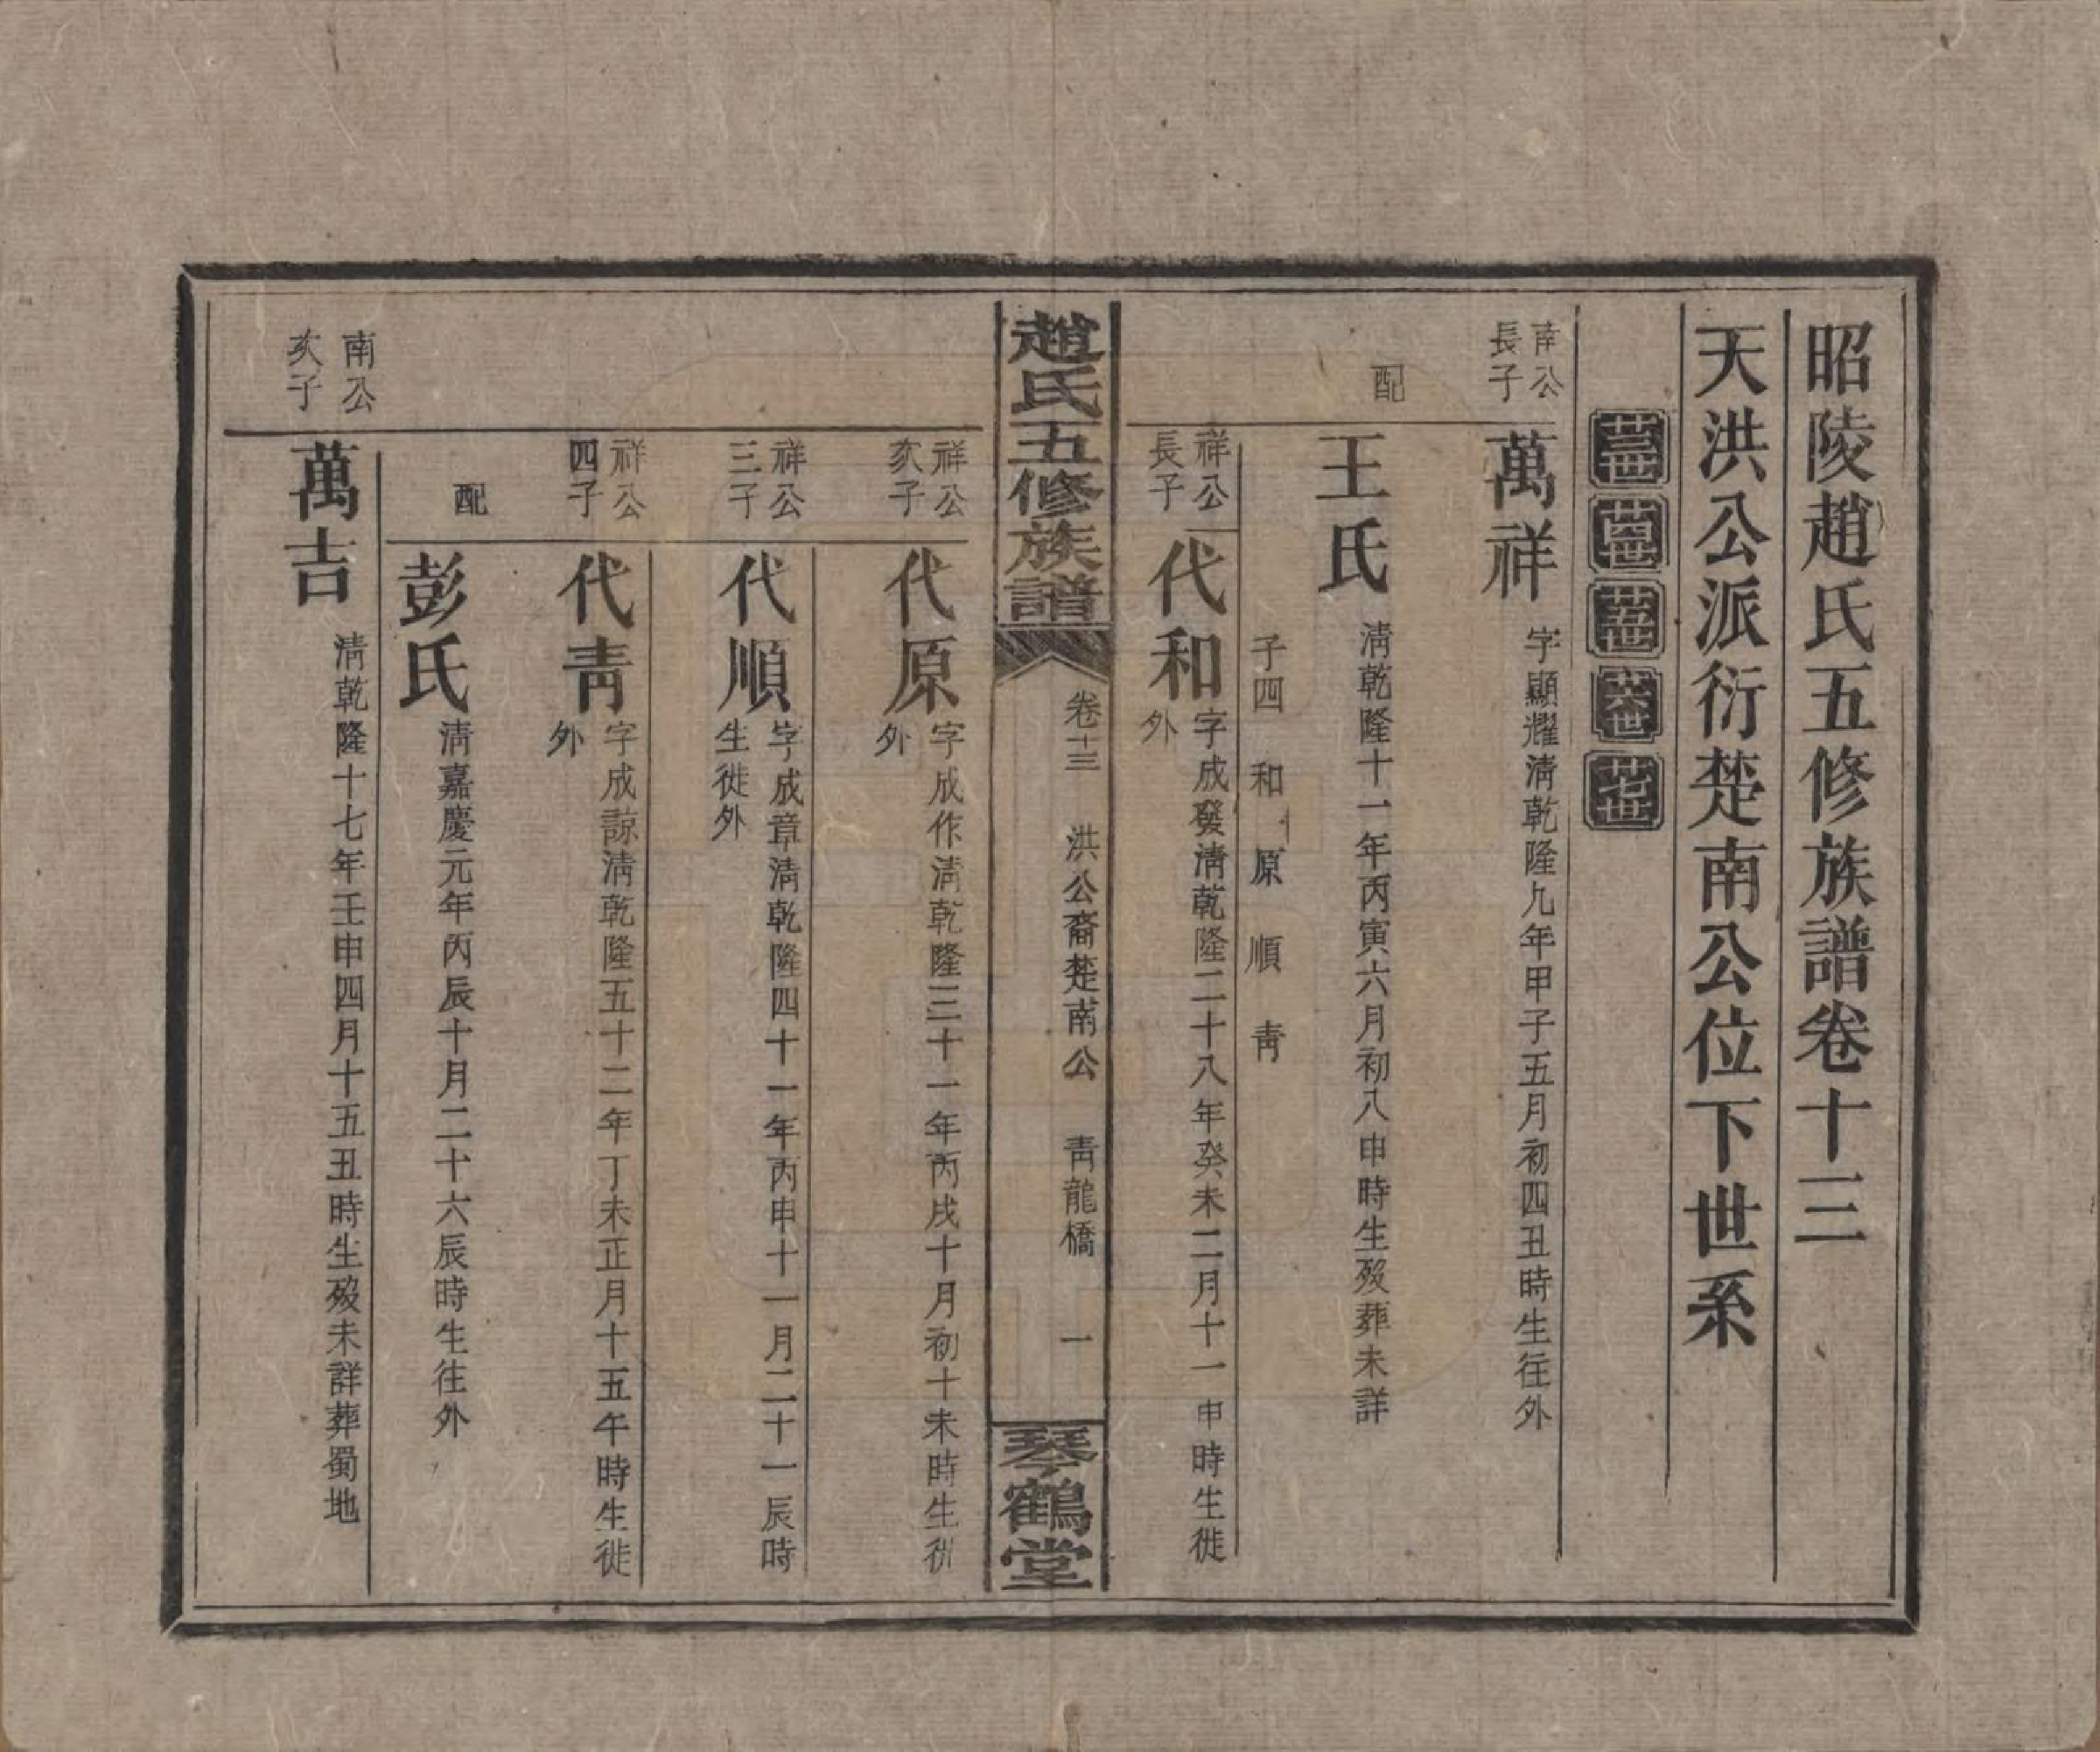 昭陵趙氏五修族譜卷十三
天洪公派衍楚南公位下世系
廿三世 廿四世 廿五世 廿六世 廿七世
南公
長子
萬祥
字顯耀淸乾隆九年甲子五月初四丑時生往外
配
王氏
淸乾隆十一年丙寅六月初八申時生歿葬未詳
子四 和 原 順 靑
祥公
長子
代和
字成發淸乾隆二十八年癸未二月十一申時生徙
外
趙氏五修族譜
卷十三 洪公裔楚南公 靑龍橋 一
琴鶴堂
祥公
次子
代原
字成作淸乾隆三十一年丙戌十月初十未時生徙
外
祥公
三子
代順
字成章淸乾隆四十一年丙申十一月二十一辰時
生徙外
祥公
四子
代靑
字成諒淸乾隆五十二年丁未正月十五午時生徙
外
配
彭氏
淸嘉慶元年丙辰十月二十六辰時生往外
南公
次子
萬吉
淸乾隆十七年壬申四月十五丑時生歿未詳葬蜀地